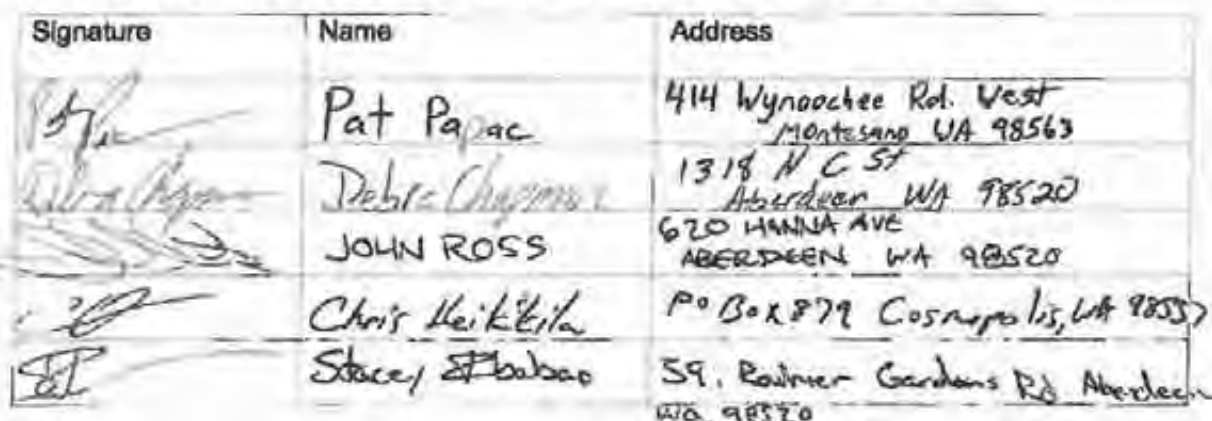 Signature Name Address
Pat Papac 414 Wynoochee Rd. West
Montesano WA 98563
Debra Chapman 1318 N C St
Aberdeen WA 98520
JOHN ROSS 620 HANNA AVE
ABERDEEN WA 98520
Chris Heikkila PO Box 879 Cosmopolis, WA 98537
Stacey 59. Rainier Gardens Rd Aberdeen
WA 98520